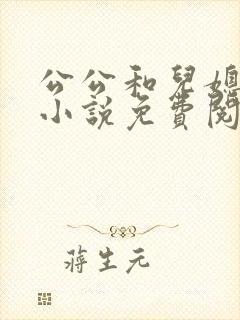 公公和兒媳
小説免費閱
蔣生元